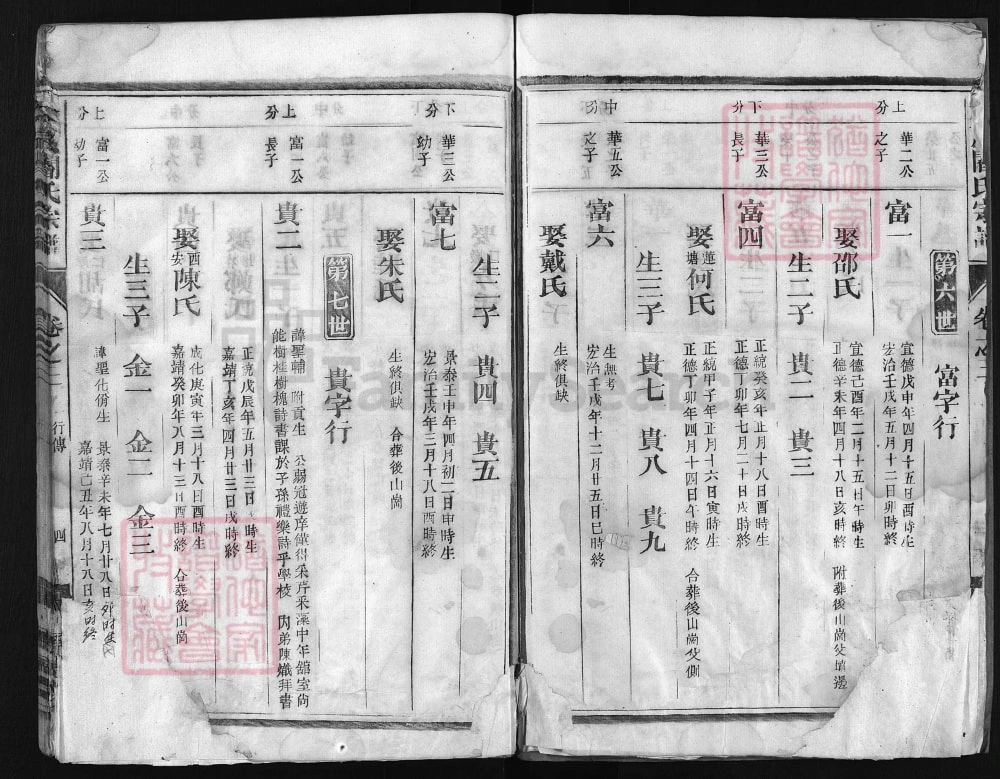 第六世 富字行
上分 華二公之子
富一
宣德戊申年四月十五日酉時生
宏治壬戌年五月十二日卯時終
娶邵氏
宣德己酉年二月十五日午時生
正德辛未年四月十八日亥時終
附葬後山崗父墳邊
生二子 貴二 貴三
下分 華三公長子
富四
正統癸亥年正月十八日酉時生
正德丁卯年七月二十日戌時終
娶蓮塘何氏
正統甲子年正月十六日寅時生
正德丁卯年四月十四日午時終
合葬後山崗父側
生三子 貴七 貴八 貴九
中分 華五公之子
富六
生無考
宏治壬戌年十二月廿五日巳時終
娶戴氏
生終俱缺
生二子 貴四 貴五
下分 華三公幼子
富七
景泰壬申年四月初二日申時生
宏治壬戌年三月十八日酉時終
娶朱氏
生終俱缺 合葬後山崗
第七世 貴字行
上分 富一公長子
貴二
諱聖輔 附貢生 公弱冠遊庠僅得采芹采藻中年館室尚
能樹桂樹槐詩書課於子孫禮樂詩乎學校 內弟陳熾拜書
正嘉戊辰年五月廿三日戌時生
嘉靖丁亥年四月廿三日戌時終
娶西安陳氏
成化庚寅年三月十八日酉時生
嘉靖癸卯年八月十三日酉時終
合葬後山崗
生三子 金一 金二 金三
上分 富一公幼子
貴三
諱聖化佾生
景泰辛未年七月廿八日卯時生
嘉靖己丑年八月十八日亥時終
氏宗譜
卷之二
行傳
四